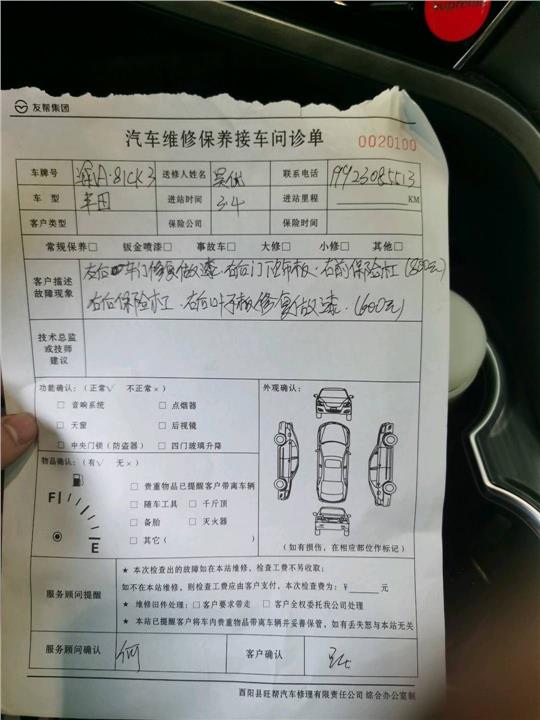 supreme
友帮集团
汽车维修保养接车问诊单 0020100
车牌号 送修人姓名 吴优 联系电话 19923085513
车 型 丰田 进站时间 3.4 进站里程 KM
客户类型 保险公司 保险时间
常规保养□ 钣金喷漆□ 事故车□ 大修□ 小修□ 其他□
客户描述
故障现象
右后车门修复做漆.右后门下饰板.右前保险杠(800元)
右后保险杠.右后叶子板修复做漆.(600元)
技术总监
或技师
建议
功能确认:(正常√ 不正常×) 外观确认:
□ 音响系统 □ 点烟器
□ 天窗 □ 后视镜
□ 中央门锁(防盗器) □ 四门玻璃升降
物品确认:(有√ 无×)
□ 贵重物品已提醒客户带离车辆
F □ 随车工具 □ 千斤顶
□ 备胎 □ 灭火器
E □ 其它( )
(如有损伤,在相应部位作标记)
服务顾问提醒
★ 本次检查出的故障如在本站维修,检查工费不另收取;
如不在本站维修,则检查工费应由客户支付,本次检查费为:¥ 元
★ 维修旧件处理:□客户要求带走 □客户全权委托我公司处理
★ 本站已提醒客户将车内贵重物品带离车辆并妥善保管,如有丢失恕与本站无关
服务顾问确认 何 客户确认
酉阳县旺帮汽车修理有限责任公司 综合办公室制